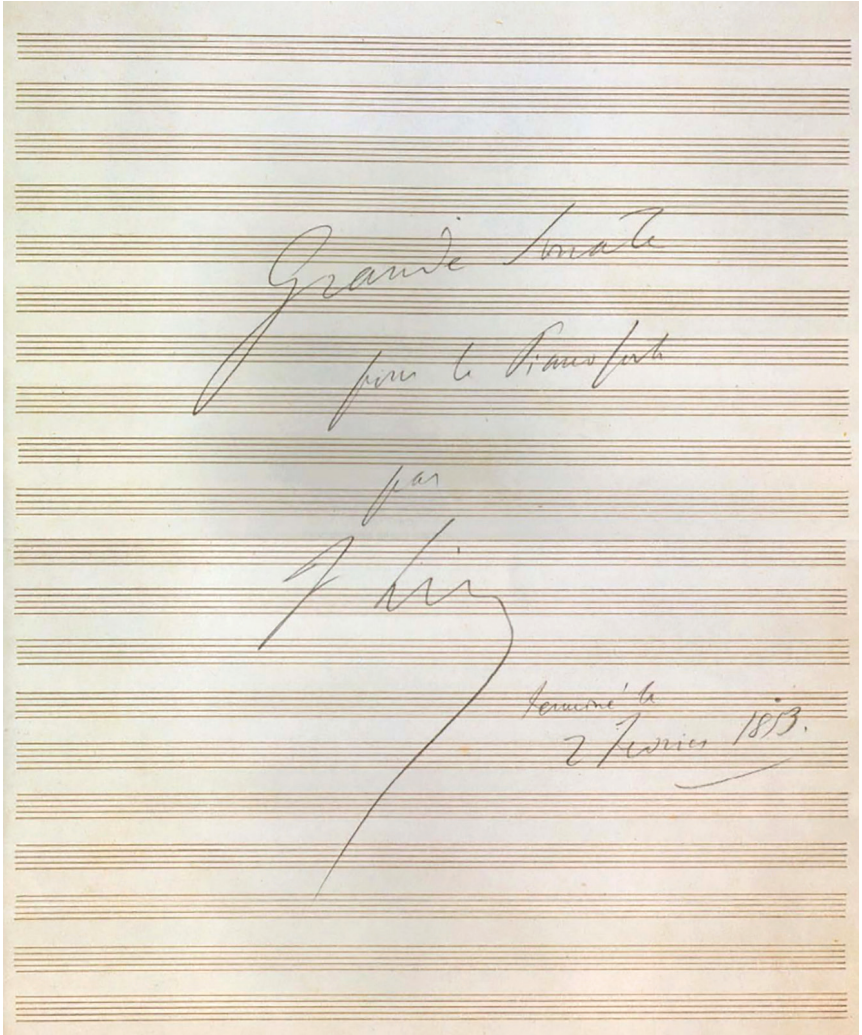 Grande Sonate
pour le Pianoforte
par
F Liszt
terminé le
2 Fevrier 1853.